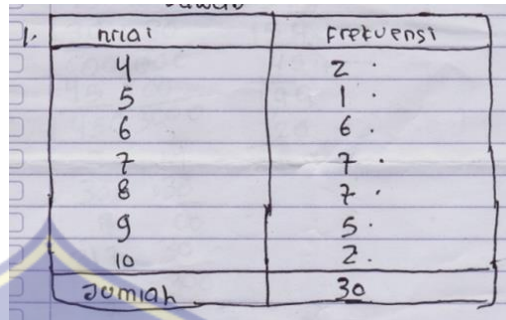 1. nilai frekuensi
4 2
5 1
6 6
7 7
8 7
9 5
10 2
Jumlah 30